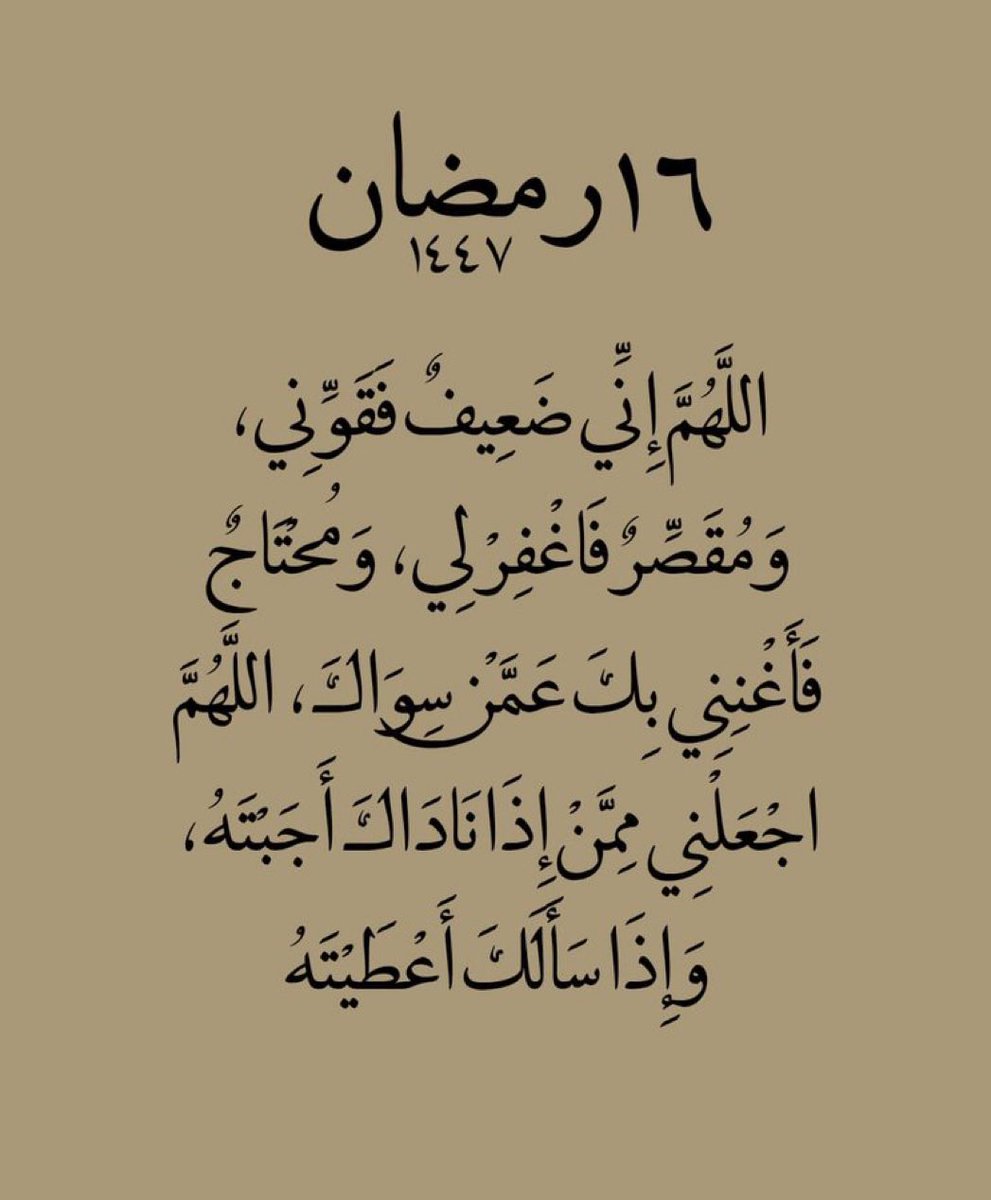 ١٦ رمضان
١٤٤٧
اللَّهُمَّ إِنِّي ضَعِيفٌ فَقَوِّنِي،
وَمُقَصِّرٌ فَاغْفِرْ لِي، وَمُحْتَاجٌ
فَأَغْنِنِي بِكَ عَمَّنْ سِوَاكَ، اللَّهُمَّ
اجْعَلْنِي مِمَّنْ إِذَا نَادَاكَ أَجَبْتَهُ،
وَإِذَا سَأَلَكَ أَعْطَيْتَهُ